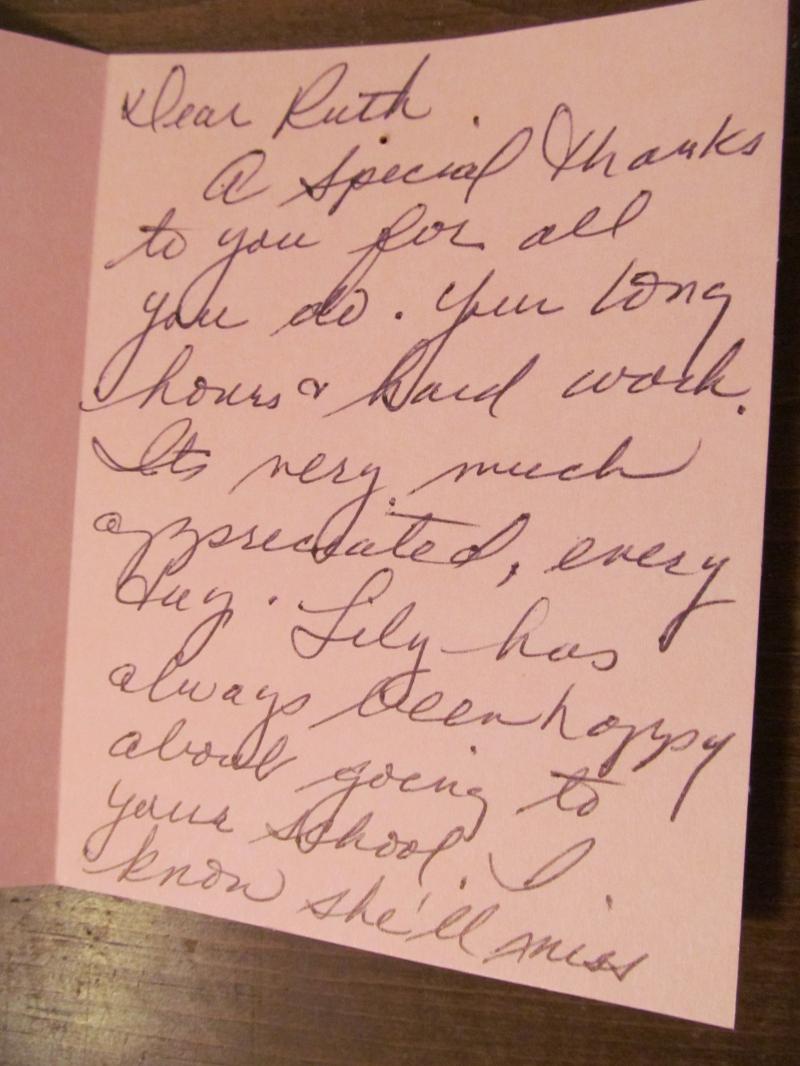 Dear Ruth.
A Special Thanks
to you for all
you do. Your long
hours & hard work.
Its very much
appreciated, every
day. Lily has
always been happy
about going to
your school. I
know she'll miss